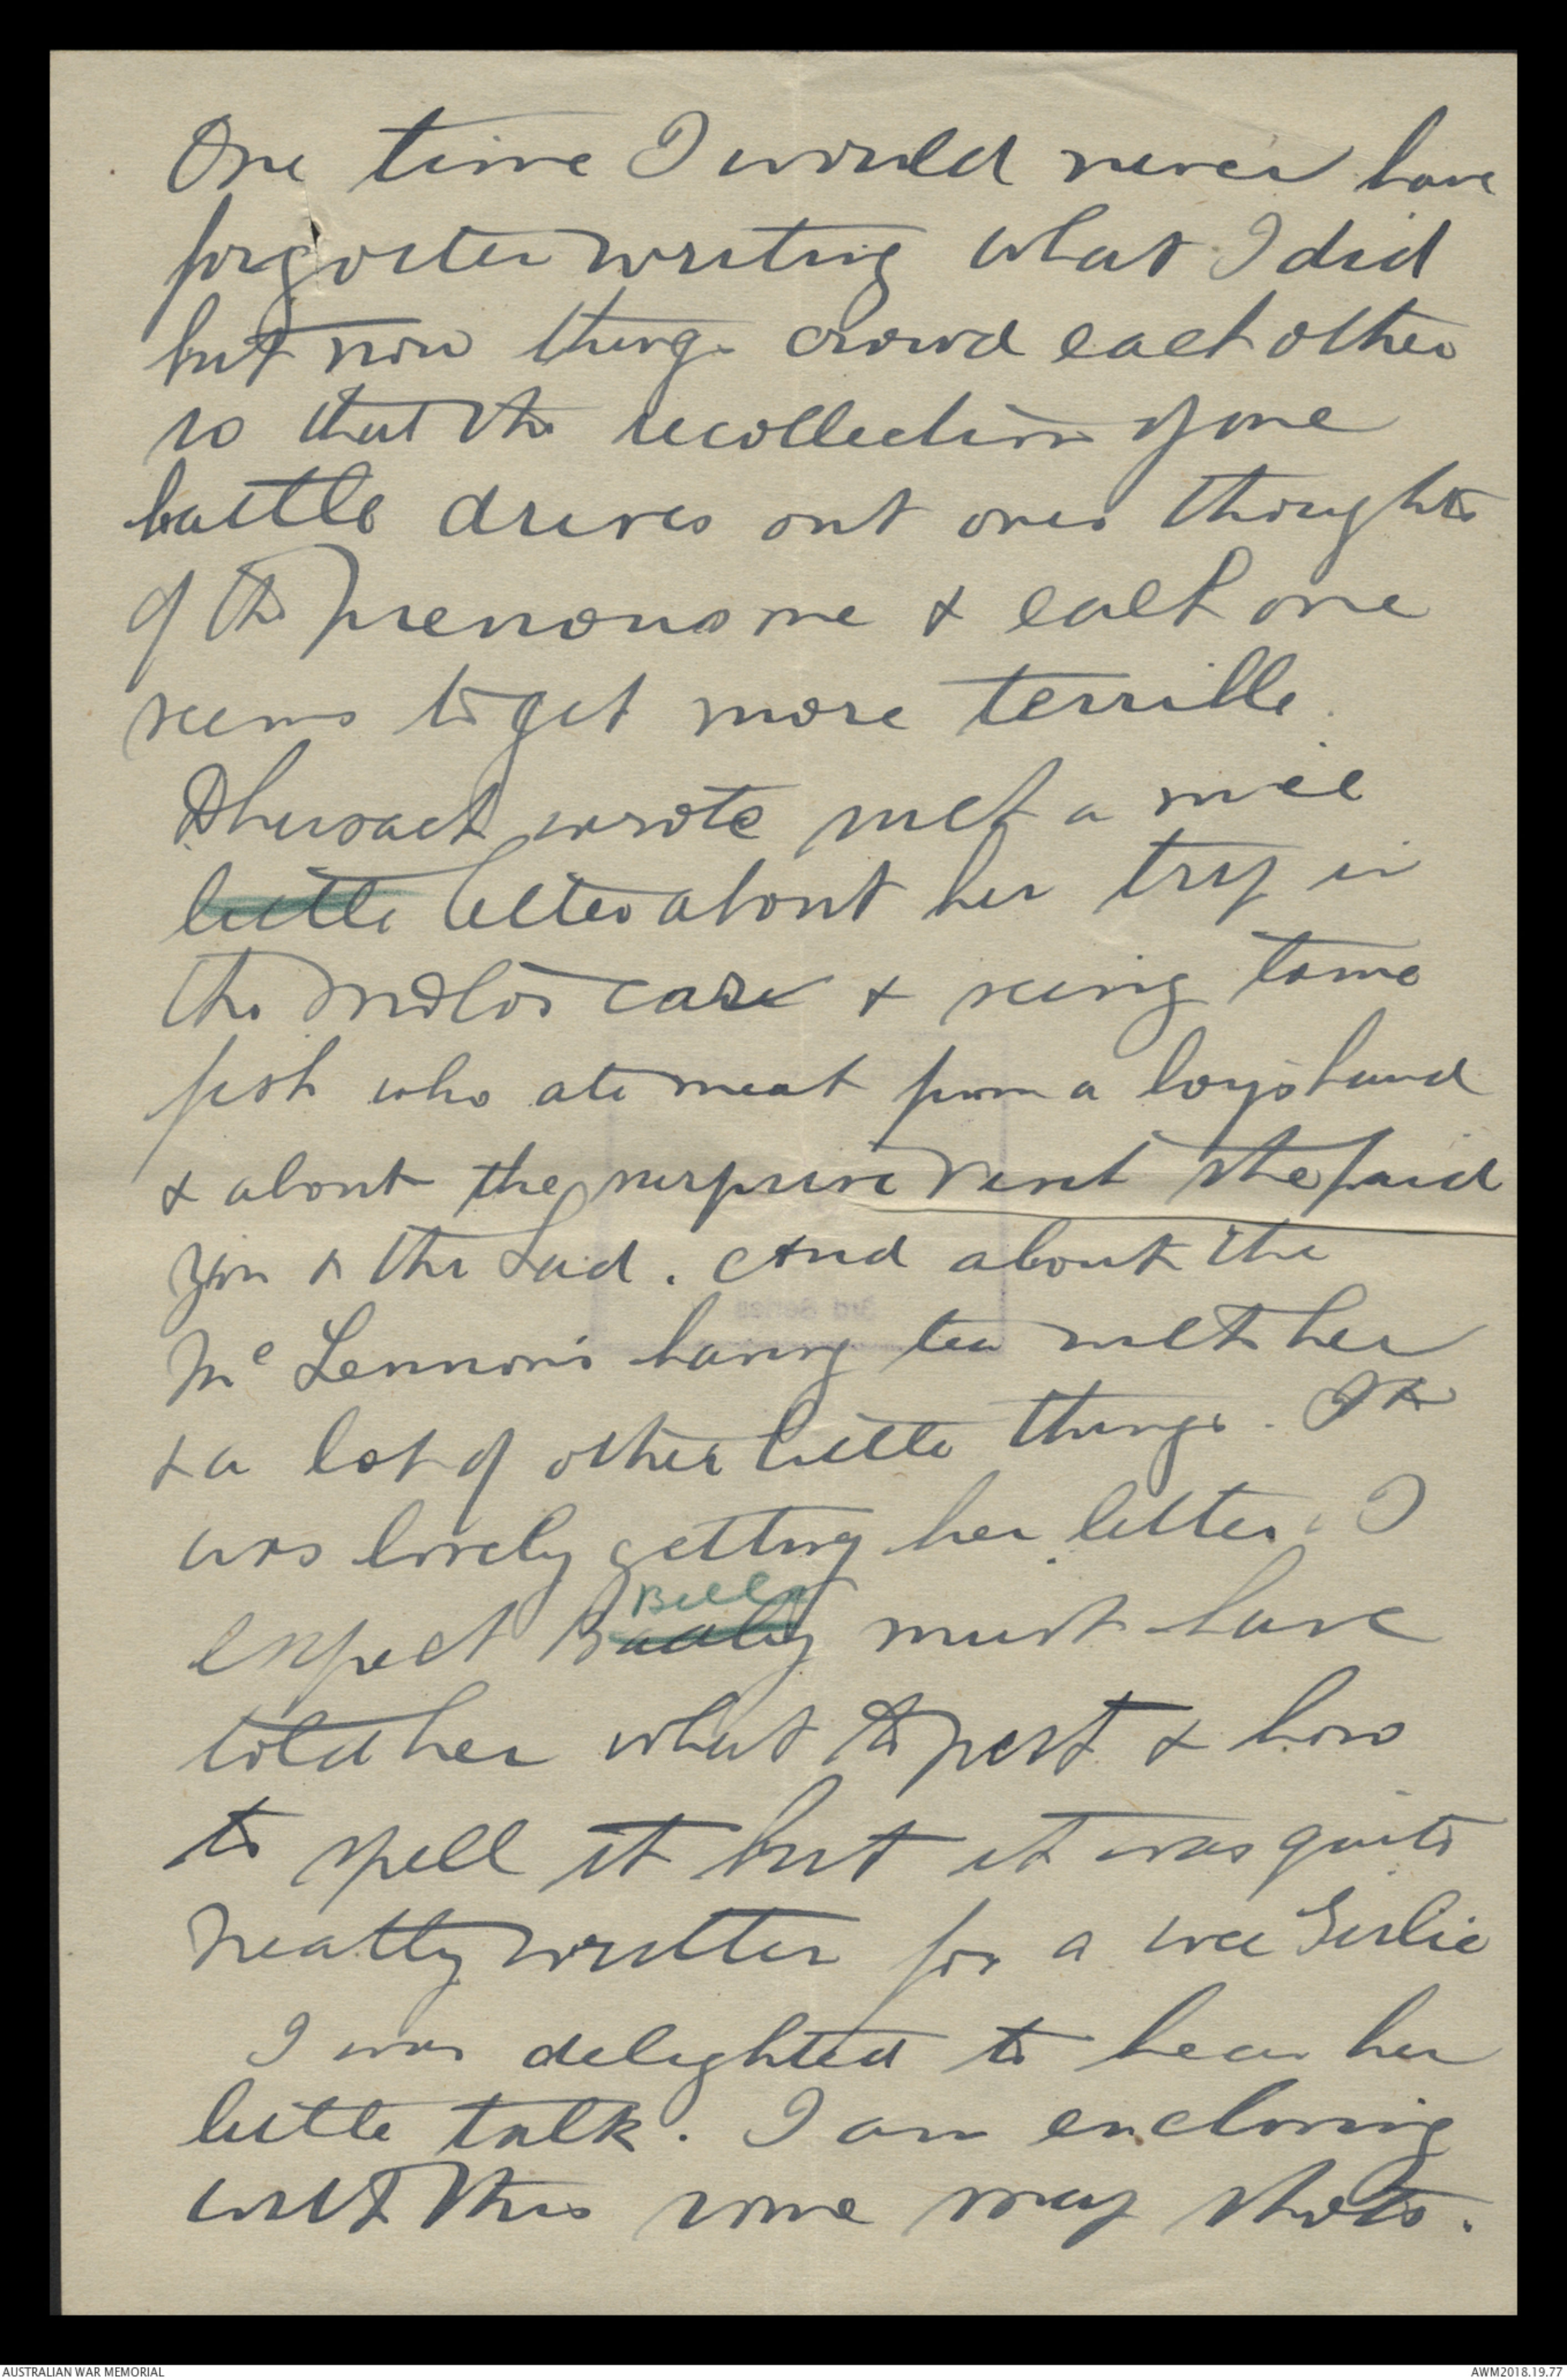 One time I would never have
forgotten writing what I did
but now things crowd each other
so that the recollection of one
battle drives out ones thoughts
of the previous one & each one
seems to get more terrible.
wrote me a nice
little letter about her trip in
the motor car & seeing tame
fish who ate meat from a boys hand
& about the surprise visit she paid
you & the Lad. And about the
McLennon's having tea with her
& a lot of other little things. It
was lovely getting her letter. I
Bill
expect must have
told her what to put & how
to spell it but it was quite
neatly written for a wee Girlie
I was delighted to hear her
little talk. I am enclosing
with this some snap shots.
3rd Series
AUSTRALIAN WAR MEMORIAL
AWM2018.19.77